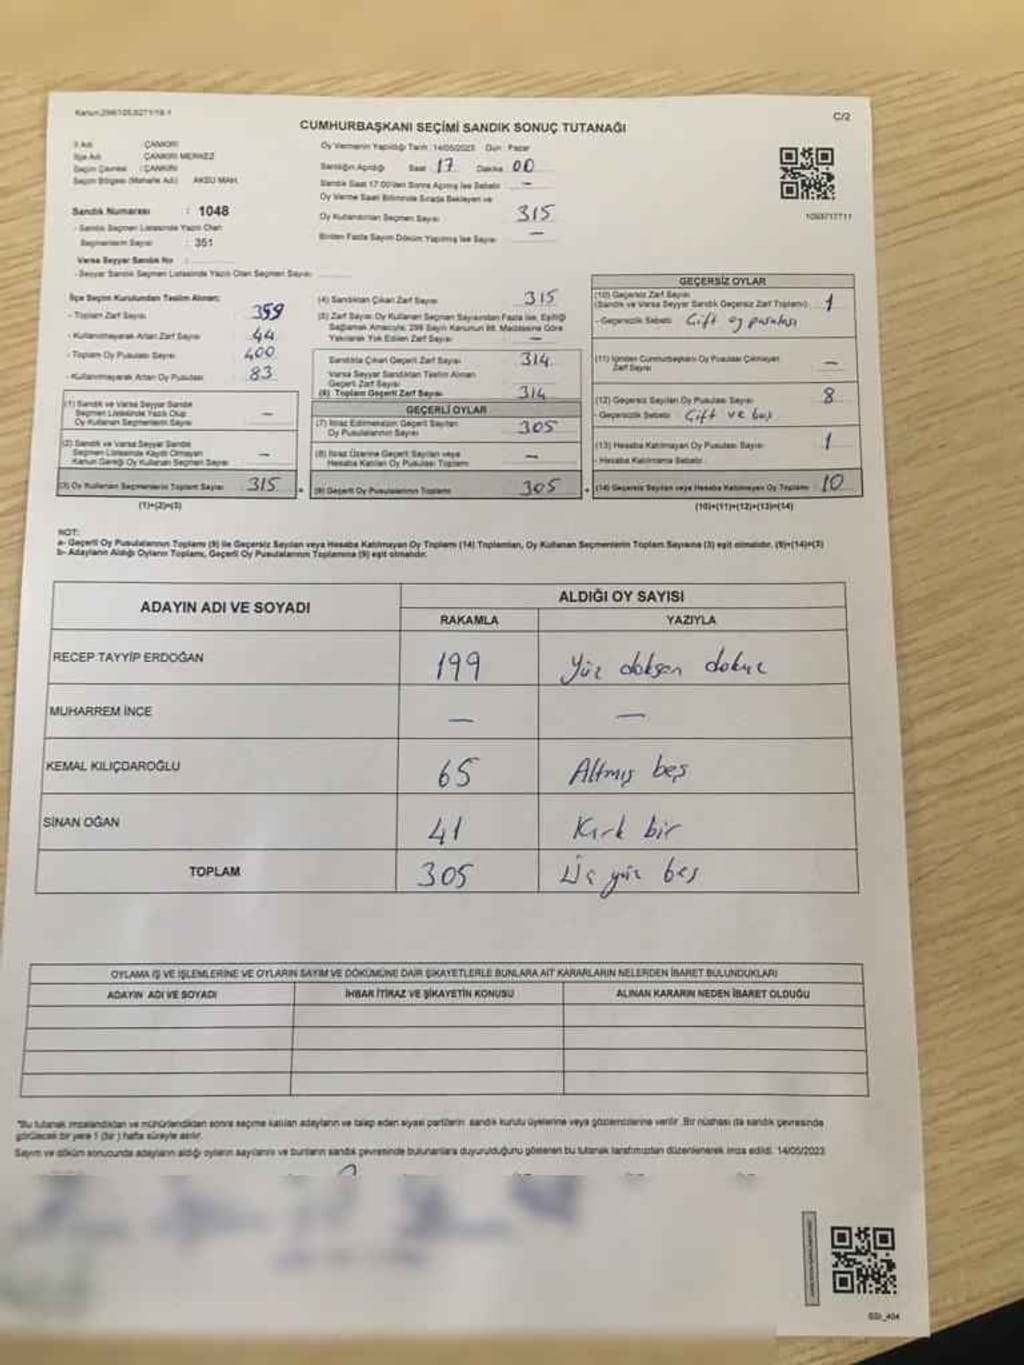 CUMHURBAŞKANI SEÇİMİ SANDIK SONUÇ TUTANAĞI
C/2
İl Adı : ÇANKIRI
İlçe Adı : ÇANKIRI MERKEZ
Seçim Çevresi : ÇANKIRI
Seçim Bölgesi (Mahalle Adı) : AKSU MAH.
Sandık Numarası : 1048
- Sandık Seçmen Listesinde Yazılı Olan
Seçmenlerin Sayısı : 351
Varsa Seyyar Sandık No :
- Seyyar Sandık Seçmen Listesinde Yazılı Olan Seçmen Sayısı :
Oy Vermenin Yapıldığı Tarih : 14/05/2023 Gün : Pazar
Sandığın Açıldığı Saat : 17 Dakika : 00
Sandık Saat 17.00'den Sonra Açılmış İse Sebebi : —
Oy Verme Saati Bitiminde Sırada Bekleyen ve
Oy Kullandırılan Seçmen Sayısı : 315
Birden Fazla Sayım Döküm Yapılmış İse Sayısı : —
1093717711
İlçe Seçim Kurulundan Teslim Alınan;
- Toplam Zarf Sayısı : 359
- Kullanılmayarak Artan Zarf Sayısı : 44
- Toplam Oy Pusulası Sayısı : 400
- Kullanılmayarak Artan Oy Pusulası : 83
(1) Sandık ve Varsa Seyyar Sandık
Seçmen Listesinde Yazılı Olup
Oy Kullanan Seçmenlerin Sayısı : —
(2) Sandık ve Varsa Seyyar Sandık
Seçmen Listesinde Kayıtlı Olmayan
Kanun Gereği Oy Kullanan Seçmen Sayısı : —
(3) Oy Kullanan Seçmenlerin Toplam Sayısı : 315
(1)+(2)=(3)
(4) Sandıktan Çıkan Zarf Sayısı : 315
(5) Zarf Sayısı Oy Kullanan Seçmen Sayısından Fazla İse, Eşitliği
Sağlamak Amacıyla, 298 Sayılı Kanunun 98. Maddesine Göre
Yakılarak Yok Edilen Zarf Sayısı : —
Sandıkta Çıkan Geçerli Zarf Sayısı : 314
Varsa Seyyar Sandıktan Teslim Alınan
Geçerli Zarf Sayısı
(6) Toplam Geçerli Zarf Sayısı : 314
GEÇERLİ OYLAR
(7) İtiraz Edilmeksizin Geçerli Sayılan
Oy Pusulalarının Sayısı : 305
(8) İtiraz Üzerine Geçerli Sayılan veya
Hesaba Katılan Oy Pusulası Toplamı : —
(9) Geçerli Oy Pusulalarının Toplamı : 305
GEÇERSİZ OYLAR
(10) Geçersiz Zarf Sayısı
(Sandık ve Varsa Seyyar Sandık Geçersiz Zarf Toplamı) : 1
- Geçersizlik Sebebi : Çift oy pusulası
(11) İçinden Cumhurbaşkanı Oy Pusulası Çıkmayan
Zarf Sayısı : —
(12) Geçersiz Sayılan Oy Pusulası Sayısı : 8
- Geçersizlik Sebebi : Çift ve boş
(13) Hesaba Katılmayan Oy Pusulası Sayısı : 1
- Hesaba Katılmama Sebebi :
(14) Geçersiz Sayılan veya Hesaba Katılmayan Oy Toplamı : 10
(10)+(11)+(12)+(13)=(14)
NOT:
a- Geçerli Oy Pusulalarının Toplamı (9) ile Geçersiz Sayılan veya Hesaba Katılmayan Oy Toplamı (14) Toplamları, Oy Kullanan Seçmenlerin Toplam Sayısına (3) eşit olmalıdır. (9)+(14)=(3)
b- Adayların Aldığı Oyların Toplamı, Geçerli Oy Pusulalarının Toplamına (9) eşit olmalıdır.
ADAYIN ADI VE SOYADI
ALDIĞI OY SAYISI
RAKAMLA YAZIYLA
RECEP TAYYİP ERDOĞAN 199 Yüz doksan dokuz
MUHARREM İNCE — —
KEMAL KILIÇDAROĞLU 65 Altmış beş
SİNAN OĞAN 41 Kırk bir
TOPLAM 305 Üç yüz beş
OYLAMA İŞ VE İŞLEMLERİNE VE OYLARIN SAYIM VE DÖKÜMÜNE DAİR ŞİKAYETLERLE BUNLARA AİT KARARLARIN NELERDEN İBARET BULUNDUKLARI
ADAYIN ADI VE SOYADI İHBAR İTİRAZ VE ŞİKAYETİN KONUSU ALINAN KARARIN NEDEN İBARET OLDUĞU
*Bu tutanak imzalandıktan ve mühürlendikten sonra seçime katılan adayların ve talep eden siyasi partilerin sandık kurulu üyelerine veya gözlemcilerine verilir. Bir nüshası da sandık çevresinde
görülecek bir yere 1 (bir) hafta süreyle asılır.
Sayım ve döküm sonucunda adayların aldığı oyların sayılarını ve bunların sandık çevresinde bulunanlara duyurulduğunu gösteren bu tutanak tarafımızdan düzenlenerek imza edildi. 14/05/2023